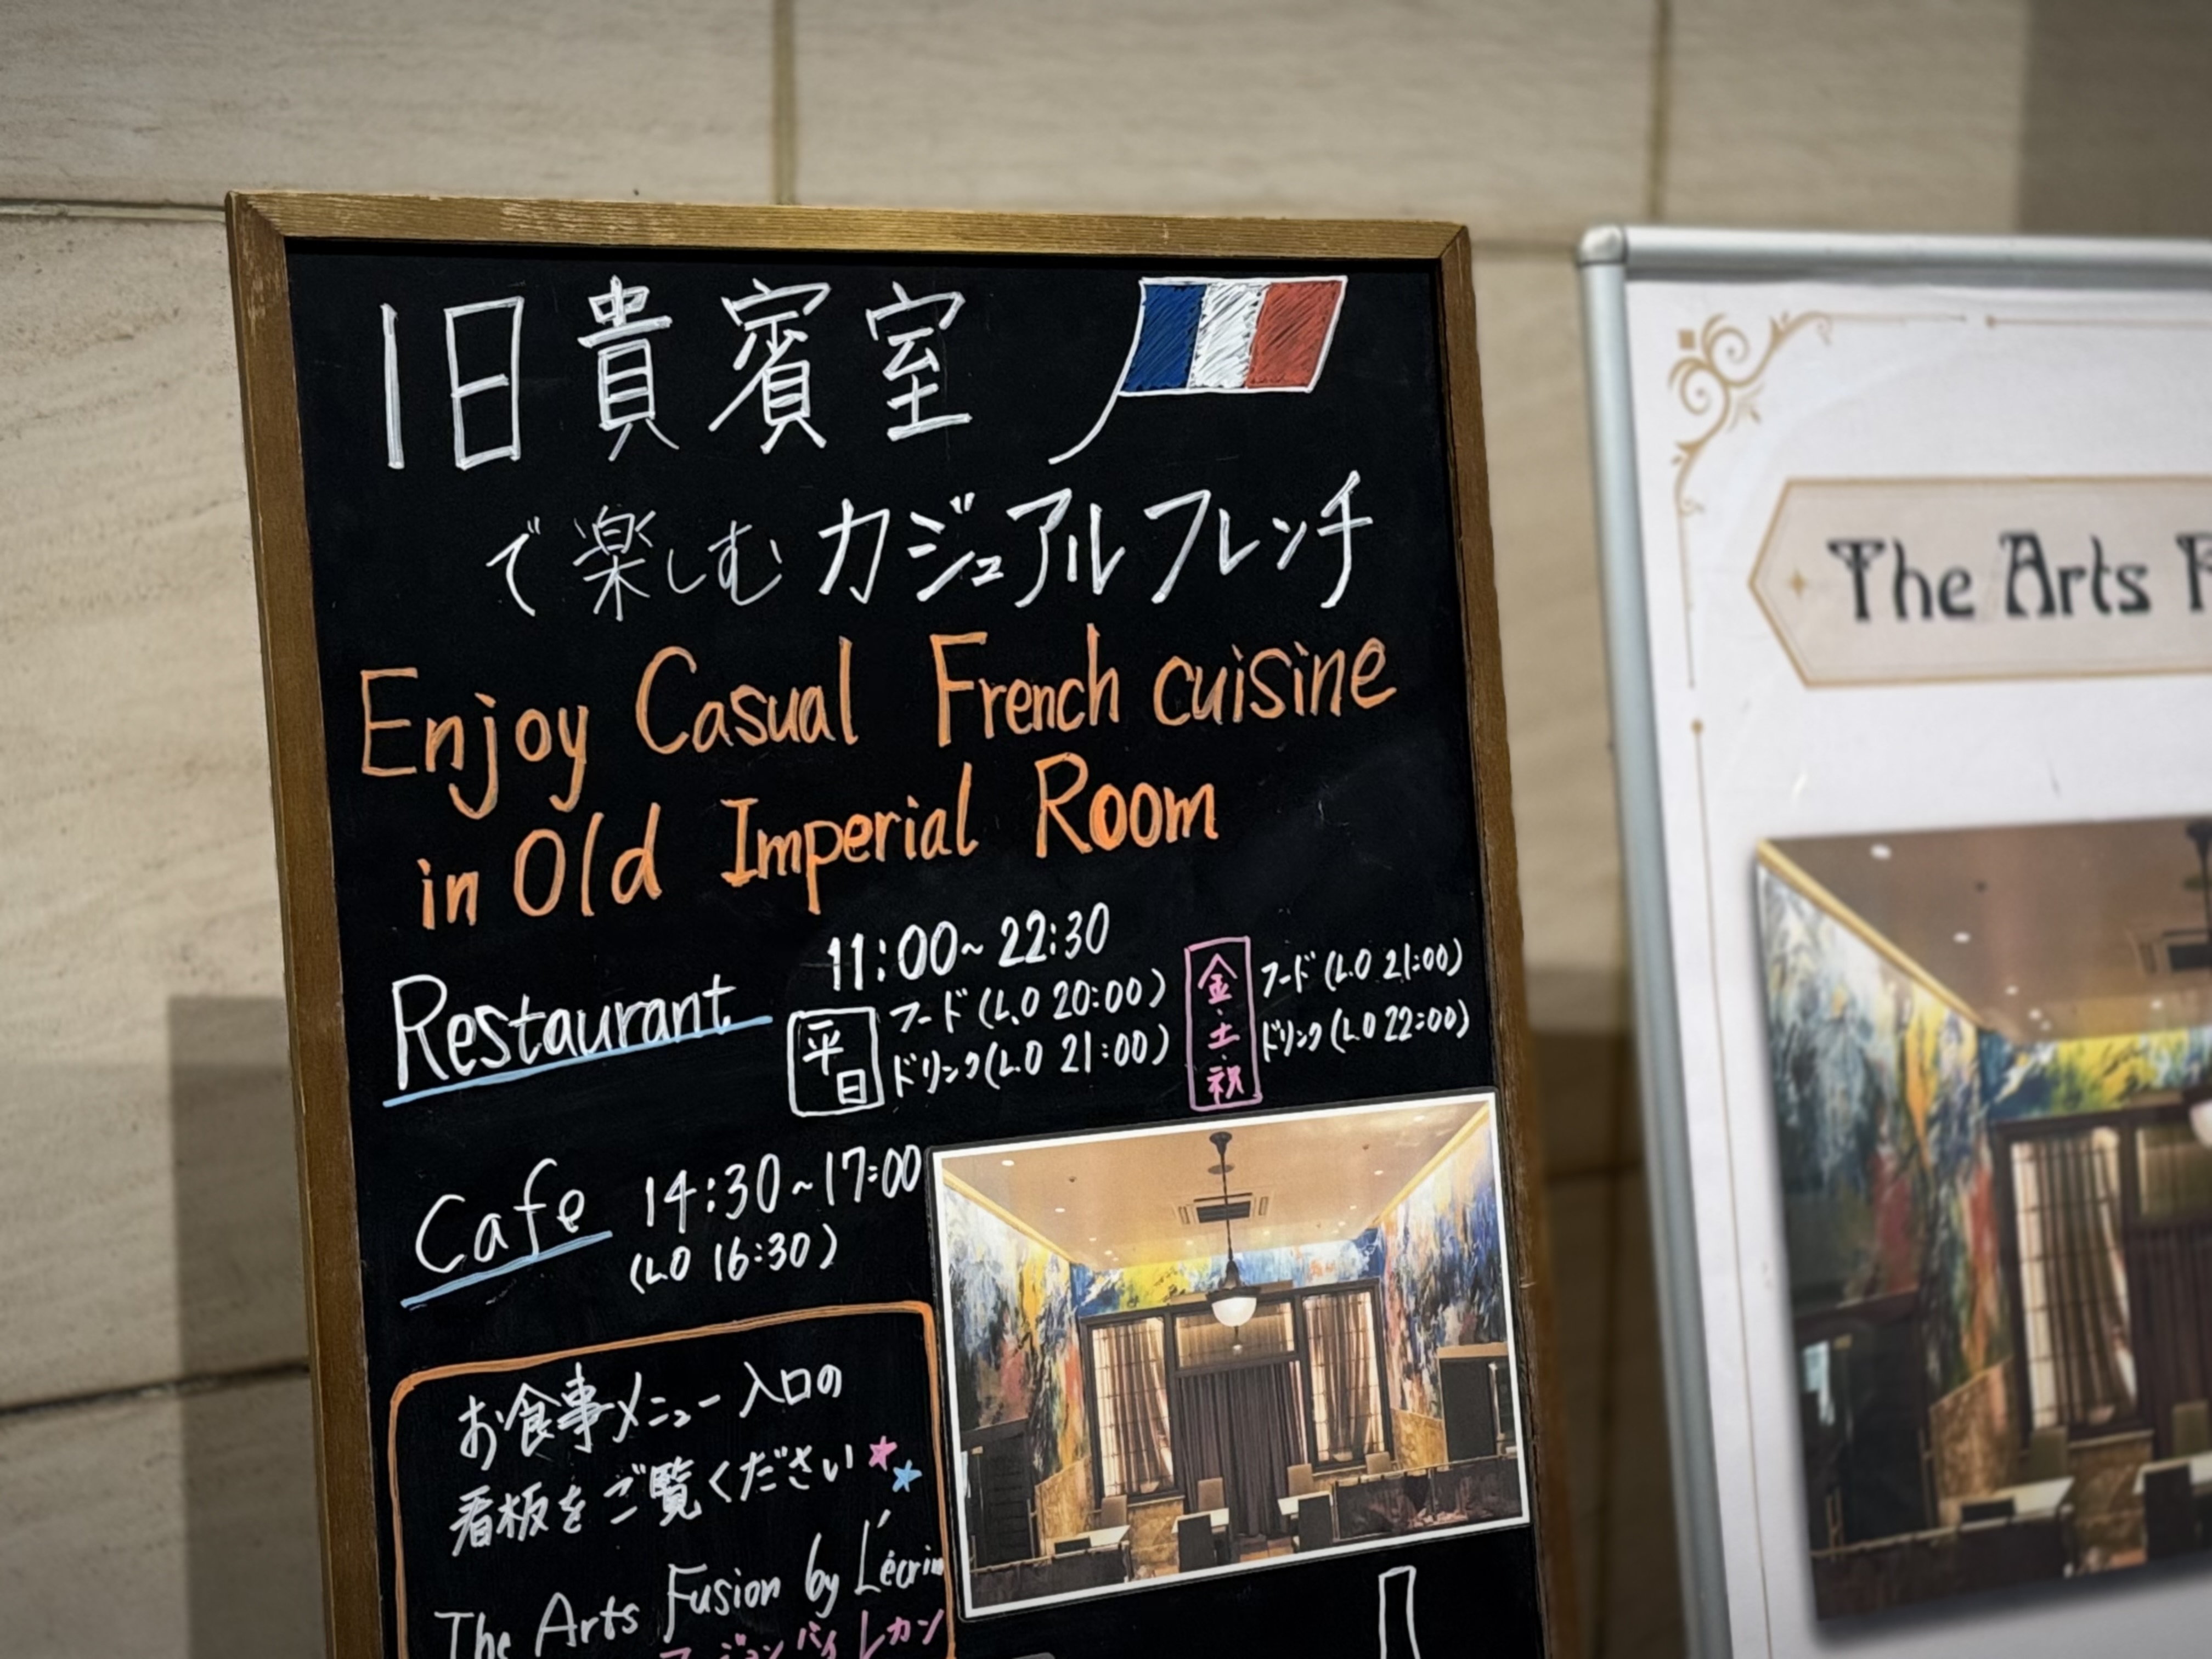 旧貴賓室
で楽しむカジュアルフレンチ
Enjoy Casual French cuisine
in Old Imperial Room
Restaurant
11:00~22:30
平日
フード(L.O 20:00)
ドリンク(L.O 21:00)
金・土・祝
フード(L.O 21:00)
ドリンク(L.O 22:00)
Cafe 14:30~17:00
(L.O 16:30)
お食事メニュー入口の
看板をご覧ください
The Arts Fusion by L'écrin
ージョン バイ レカン
The Arts